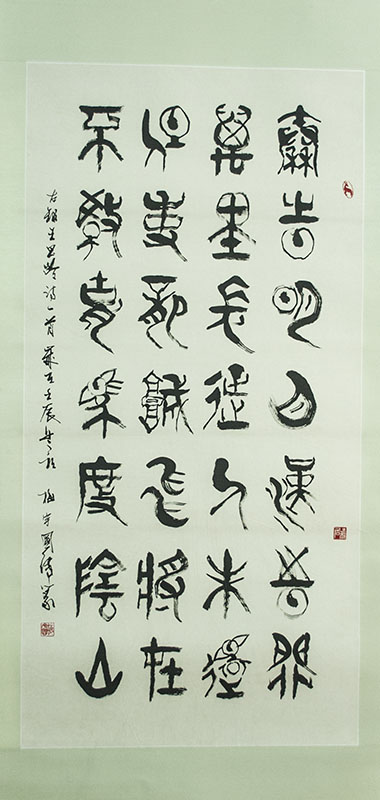 秦時明月漢時關
萬里長征人未還
但使龍城飛將在
不教胡馬度陰山
右錄王昌齡詩一首 歲在壬辰